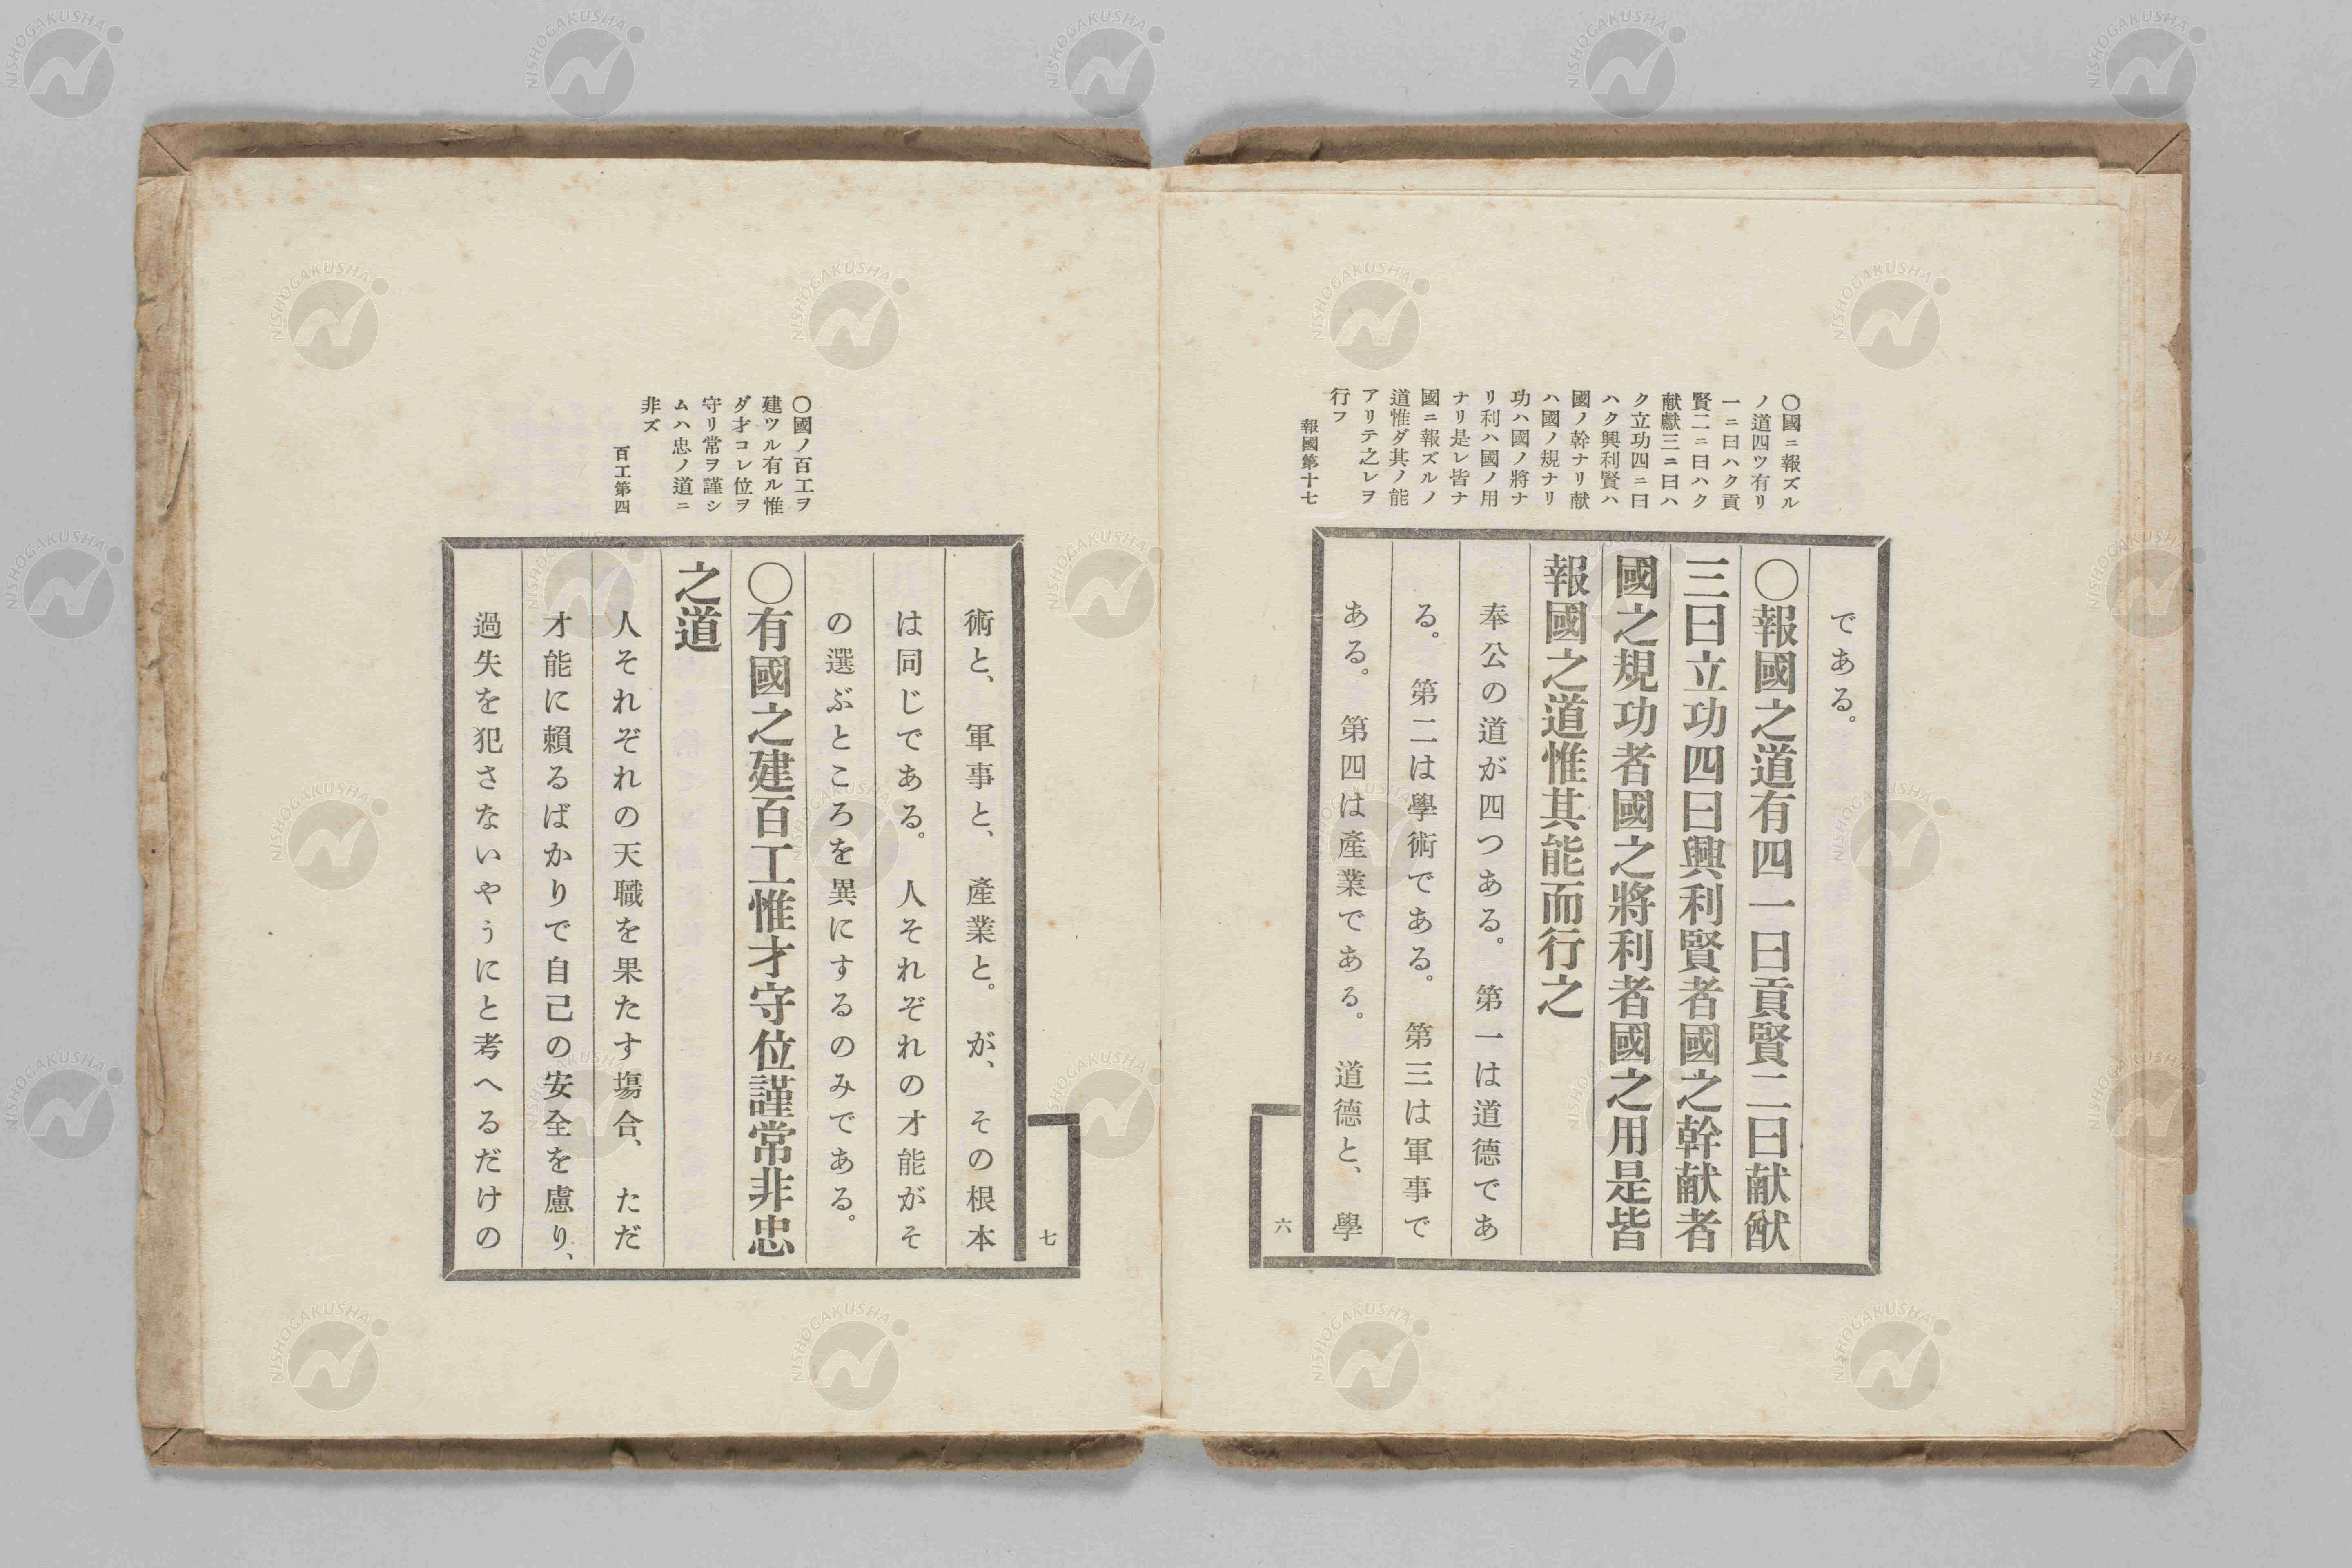 〇國ニ報ズル
ノ道四ツ有リ
一ニ曰ハク貢
賢二ニ曰ハク
献猷三ニ曰ハ
ク立功四ニ曰
ハク興利賢ハ
國ノ幹ナリ献
ハ國ノ規ナリ
功ハ國ノ將ナ
リ利ハ國ノ用
ナリ是レ皆ナ
國ニ報ズルノ
道惟ダ其ノ能
アリテ之レヲ
行フ
報國第十七
である。
〇報國之道有四一曰貢賢二曰献猷
三曰立功四曰興利賢者國之幹献者
國之規功者國之將利者國之用是皆
報國之道惟其能而行之
奉公の道が四つある。第一は道德であ
る。第二は學術である。第三は軍事で
ある。第四は產業である。道德と、學
六
〇國ノ百工ヲ
建ツル有ル惟
ダ才コレ位ヲ
守リ常ヲ謹シ
ムハ忠ノ道ニ
非ズ
百工第四
術と、軍事と、產業と。が、その根本
は同じである。人それぞれの才能がそ
の選ぶところを異にするのみである。
〇有國之建百工惟才守位謹常非忠
之道
人それぞれの天職を果たす塲合、ただ
才能に賴るばかりで自己の安全を慮り、
過失を犯さないやうにと考へるだけの
七
NISHOGAKUSHA